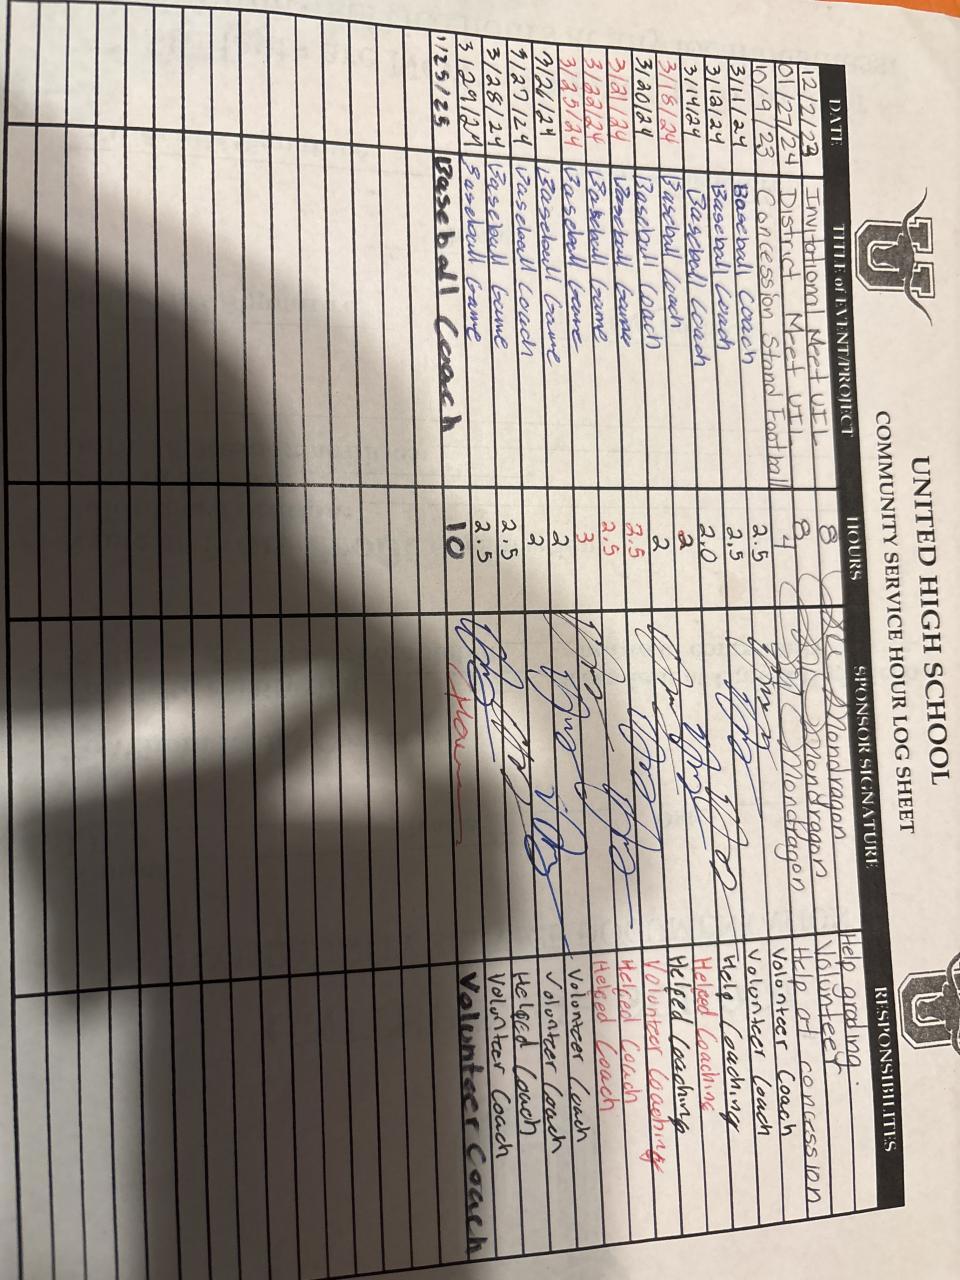 UNITED HIGH SCHOOL
COMMUNITY SERVICE HOUR LOG SHEET
DATE TITLE of EVENT/PROJECT HOURS SPONSOR SIGNATURE RESPONSIBILITES
12/2/23 Invitational Meet UIL 8 Mondragon Help grading
01/27/24 District Meet UIL 8 Mondragon Volunteer
10/9/23 Concession Stand Football 4 Mondragon Help at concession
3/11/24 Baseball Coach 2.5 Volunteer Coach
3/12/24 Baseball Coach 2.5 Volunteer Coach
3/14/24 Baseball Coach 2.0 Help Coaching
3/18/24 Baseball Coach 2 Helped Coaching
3/20/24 Baseball Coach 2 Helped Coaching
3/21/24 Baseball Game 2.5 Volunteer Coaching
3/22/24 Baseball Game 2.5 Helped Coach
3/25/24 Baseball Game 3 Helped Coach
3/26/24 Baseball Game 2 Volunteer Coach
3/27/24 Baseball Coach 2 Volunteer Coach
3/28/24 Baseball Game 2.5 Helped Coach
3/29/24 Baseball Game 2.5 Volunteer Coach
1/25/25 Baseball Coach 10 Volunteer Coach